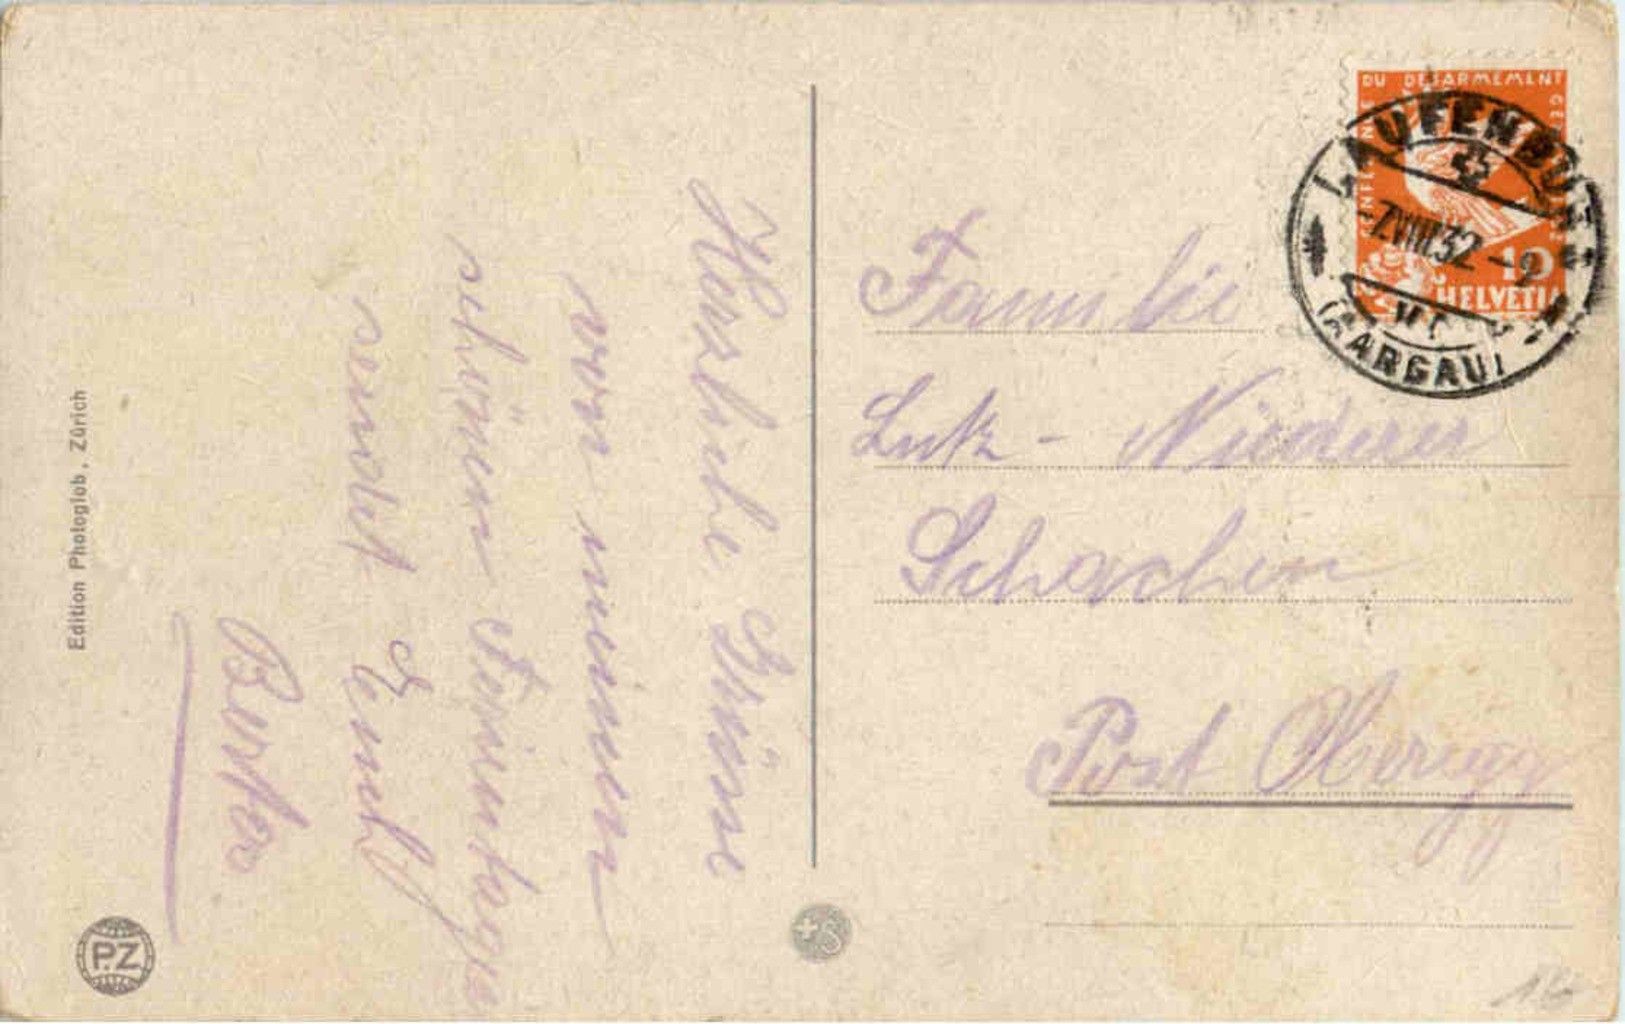 Herzliche Grüsse
von meinen
schönen Ferientagen
sendet Euch
Edition Photoglob, Zürich
P.Z
+S
DU DESARMEMENT
HELVETIA
10
LAUFENBURG
7.VIII.32
(AARGAU)
Familie
Lutz - Niederer
Schachen
Post Oberegg